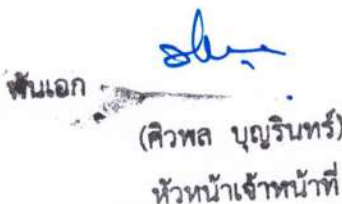 พันเอก
(ศิวพล บุญรินทร์)
หัวหน้าเจ้าหน้าที่